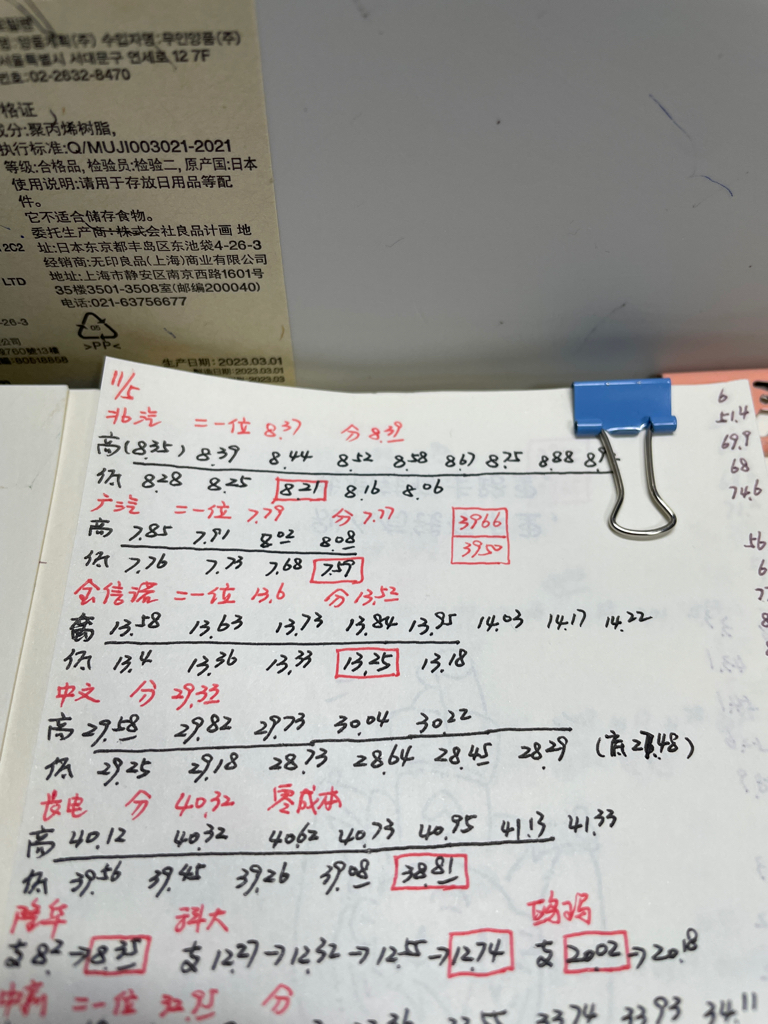 명:양품계획(주) 수입자명:무인양품(주)
서울특별시 서대문구 연세로 12 7F
번호:02-2632-8470
格证
成分:聚丙烯树脂,
执行标准:Q/MUJI003021-2021
等级:合格品, 检验员:检验二, 原产国:日本
使用说明:请用于存放日用品等配
件。
它不适合储存食物。
委托生产商:株式会社良品计画 地
12C2 址:日本东京都丰岛区东池袋4-26-3
经销商:无印良品(上海)商业有限公司
LTD 地址:上海市静安区南京西路1601号
35楼3501-3508室(邮编200040)
电话:021-63756677
-26-3
05
>PP<
生产日期:2023.03.01
11/5
北汽 =一位 8.37 分 8.39
高(8.35) 8.39 8.44 8.52 8.58 8.67 8.75 8.88
低 8.28 8.25 8.21 8.16 8.06
广汽 =一位 7.79 分 7.77
高 7.85 7.91 8.02 8.08
低 7.76 7.73 7.68 7.59
3966
3950
金信诺 =一位 13.6 分 13.52
高 13.58 13.63 13.73 13.84 13.95 14.03 14.17 14.22
低 13.4 13.36 13.33 13.25 13.18
中文 分 29.33
高 29.58 29.82 29.73 30.04 30.22
低 29.25 29.18 28.73 28.64 28.45 28.29
长电 分 40.32 零成本
高 40.12 40.32 40.62 40.73 40.95 41.13 41.33
低 39.56 39.45 39.26 39.08 38.81
隆华 科大
支 8.2→8.35 支 12.27→12.32→12.55→12.74 支 20.02→20.18
=一位 32.95 分
33.74 33.93 34.11
6
51.4
69.9
68
74.6
56